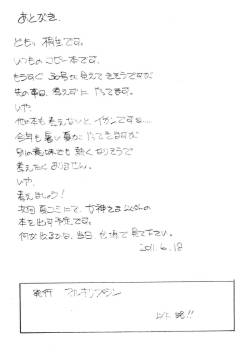 あとがき.
ども。桐生です。
いつものコピー本です。
もうすぐ30号が見えてきそうですが
先の事は、考えずに やってます。
いや、
他の本も考えないと、イカンですす…
今年も暑い夏が やってきますが
別の意味でも 熱くなりそうで
考えたくありません。
いや、
考えましょう!
次回 夏コミにて、女神さま以外の
本を出す予定です。
何が出るかは、当日、会場で見て下さい。
2011.6.18
発行 マルキリプシン
以下 略!!